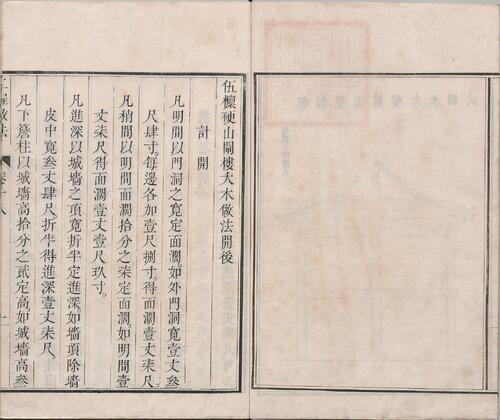 伍檁硬山閘樓大木做法開後
計開
凡明間以門洞之寬定面濶如外門洞寬壹丈叁
尺肆寸每邊各加壹尺捌寸得面濶壹丈柒尺
凡稍間以明間面濶拾分之柒定面濶如明間壹
丈柒尺得面濶壹丈壹尺玖寸
凡進深以城墻之頂寬折半定進深如墻頂除墻
皮中寬叁丈肆尺折半得進深壹丈柒尺
凡下簷柱以城墻高拾分之貳定高如城墻高叁